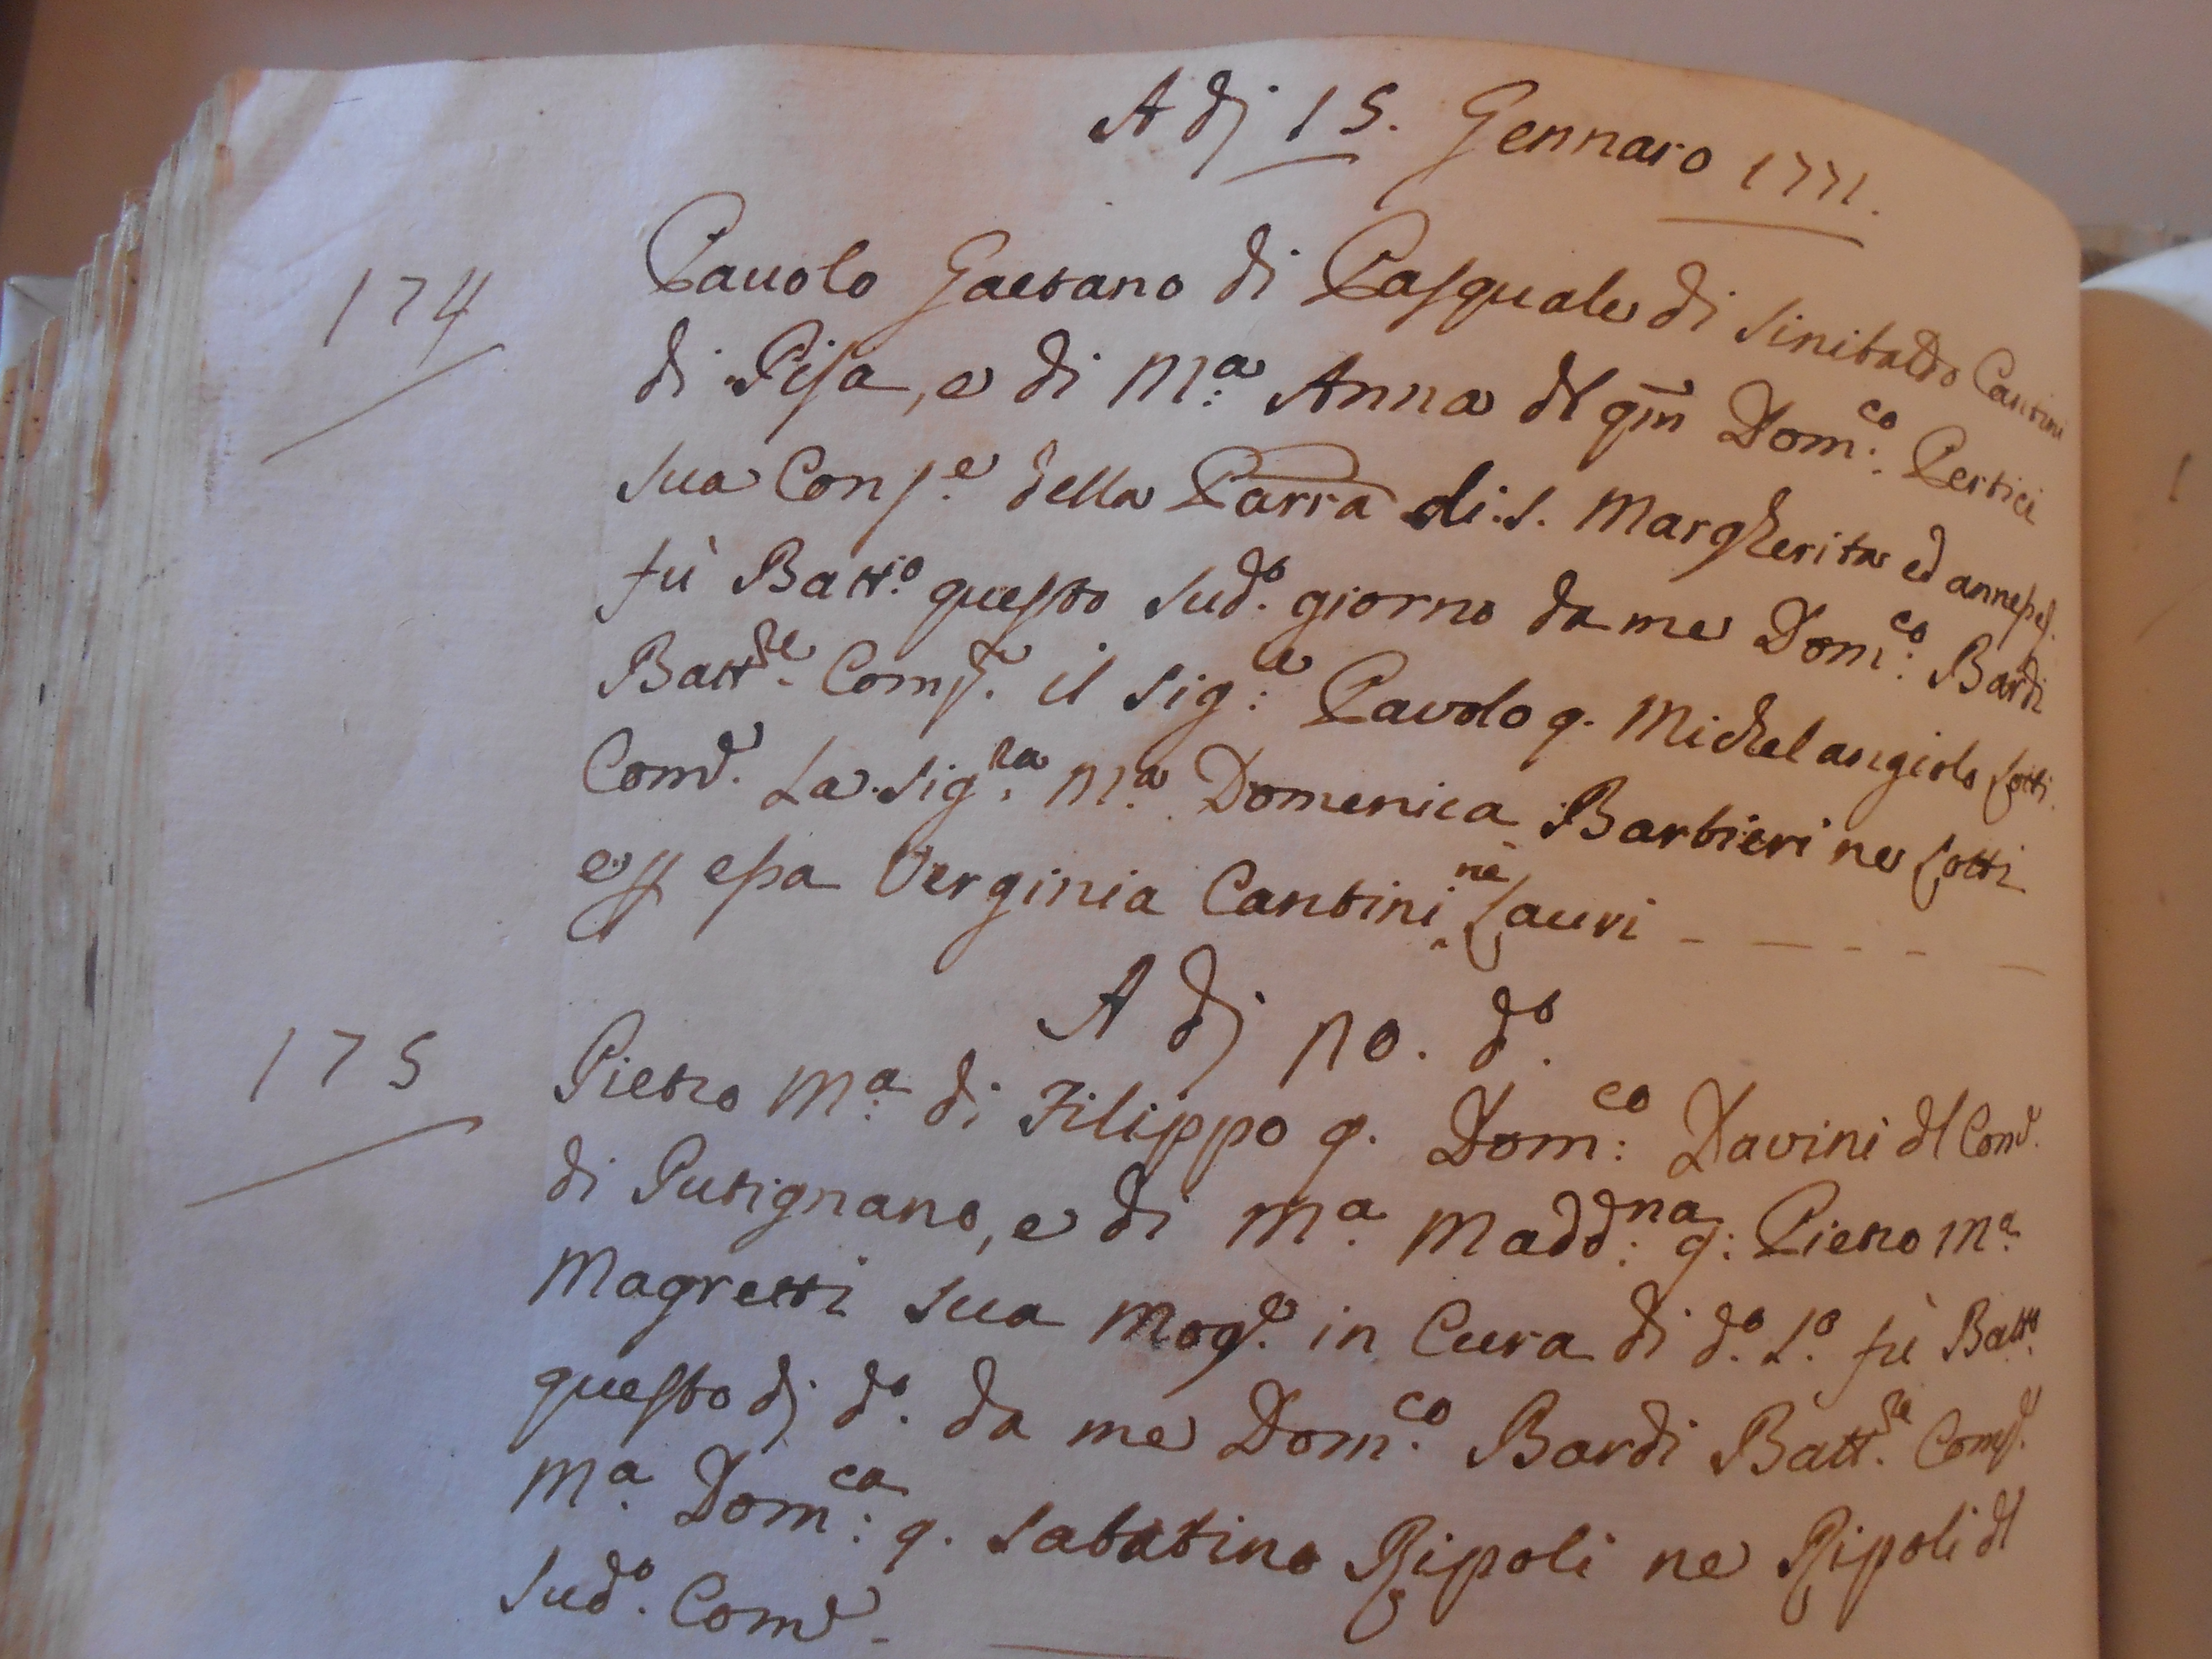 A dj 15. Gennaro 1771.
174
Pauolo Gaetano di Pasquale di Sinibaldo Cantini
di Pisa, e di M.a Anna dl qm Dom.co Pertici
sua Cons.e della Parra di S. Margherita ed anness.
fù Batt.o questo sud.o giorno da me Dom.co Bardi
Batt.re Comp.e il Sig.re Pavolo q. Michelangiolo Lotti.
Com.e La Sig.ra M.a Domenica Barbieri ne Lotti
essa Verginia Cantini ne Lauri
A dj no. d.o
175
Pietro M.a di Filippo q. Dom.co Davini dl Com.e
di Putignano, e di M.a Madd.na q. Pietro M.a
Magretti sua Mog.e in Cura di d.o L.o fù Batt.o
questo dj d.o da me Dom.co Bardi Batt.re Comp.e
M.a Dom.ca q. Sabatino Ripoli ne Ripoli dl
Sud.o Com.e